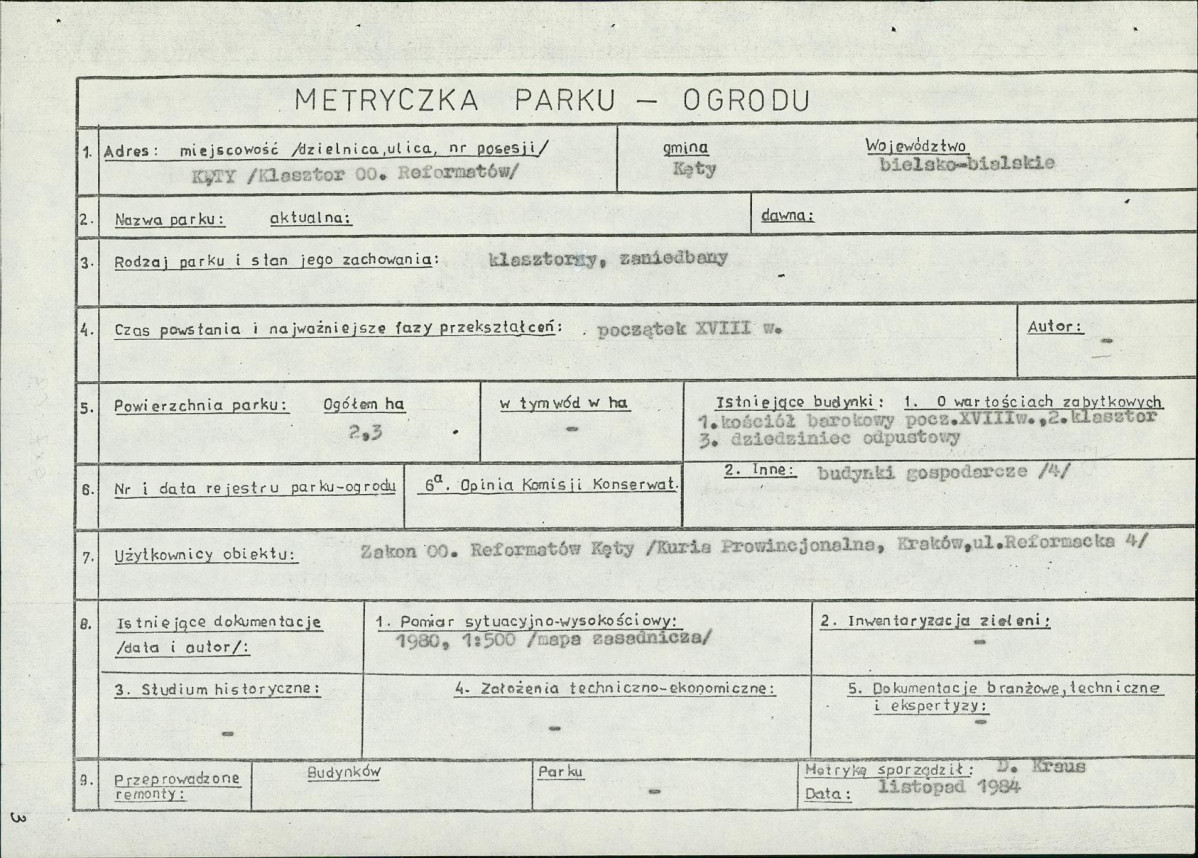 METRYCZKA PARKU — OGRODU
1. Adres: miejscowość /dzielnica,ulica, nr posesji/
KĘTY /Klasztor OO. Reformatów/
gmina
Kęty
Województwo
bielsko-bialskie
2. Nazwa parku: aktualna:
dawna:
3. Rodzaj parku i stan jego zachowania: klasztorny, zaniedbany
4. Czas powstania i najważniejsze fazy przekształceń: początek XVIII w.
Autor:
-
5. Powierzchnia parku: Ogółem ha
2,3
w tym wód w ha
-
Istniejące budynki: 1. O wartościach zabytkowych
1.kościół barokowy pocz.XVIIIw.,2.klasztor
3. dziedziniec odpustowy
2. Inne: budynki gospodarcze /4/
6. Nr i data rejestru parku-ogrodu
6a. Opinia Komisji Konserwat.
7. Użytkownicy obiektu: Zakon OO. Reformatów Kęty /Kuria Prowincjonalna, Kraków,ul.Reformacka 4/
8. Istniejące dokumentacje
/data i autor/:
1. Pomiar sytuacyjno-wysokościowy:
1980, 1:500 /mapa zasadnicza/
2. Inwentaryzacja zieleni:
-
3. Studium historyczne:
-
4. Założenia techniczno-ekonomiczne:
-
5. Dokumentacje branżowe,techniczne
i ekspertyzy:
-
9. Przeprowadzone
remonty:
Budynków
Parku
-
Metrykę sporządził: D. Kraus
Data: listopad 1984
3